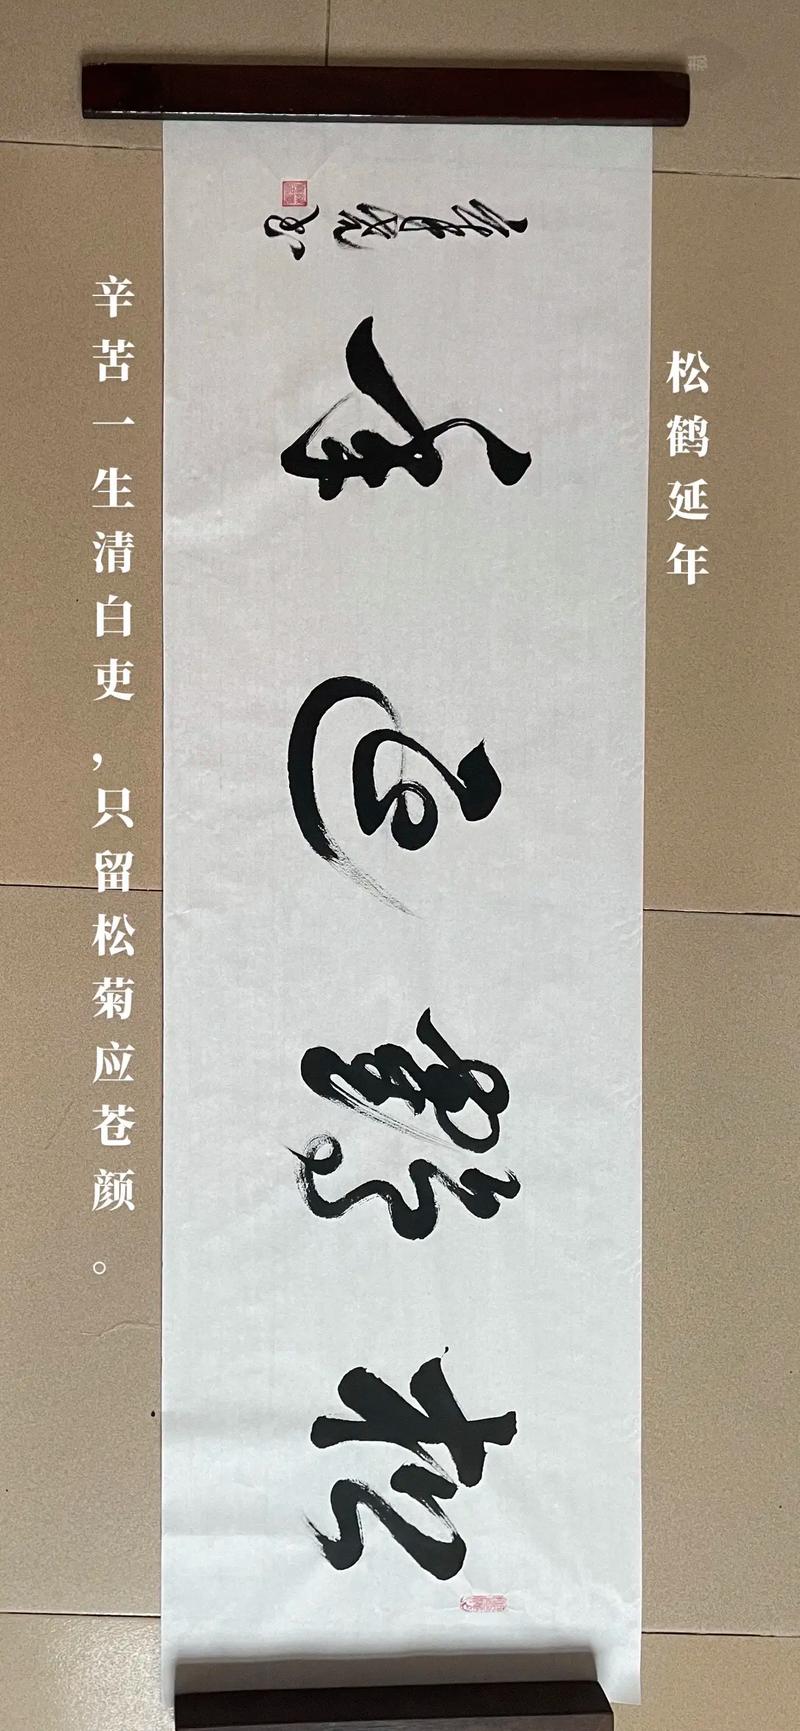 松鹤延年
松鶴延年
辛苦一生清白吏，只留松菊应苍颜。